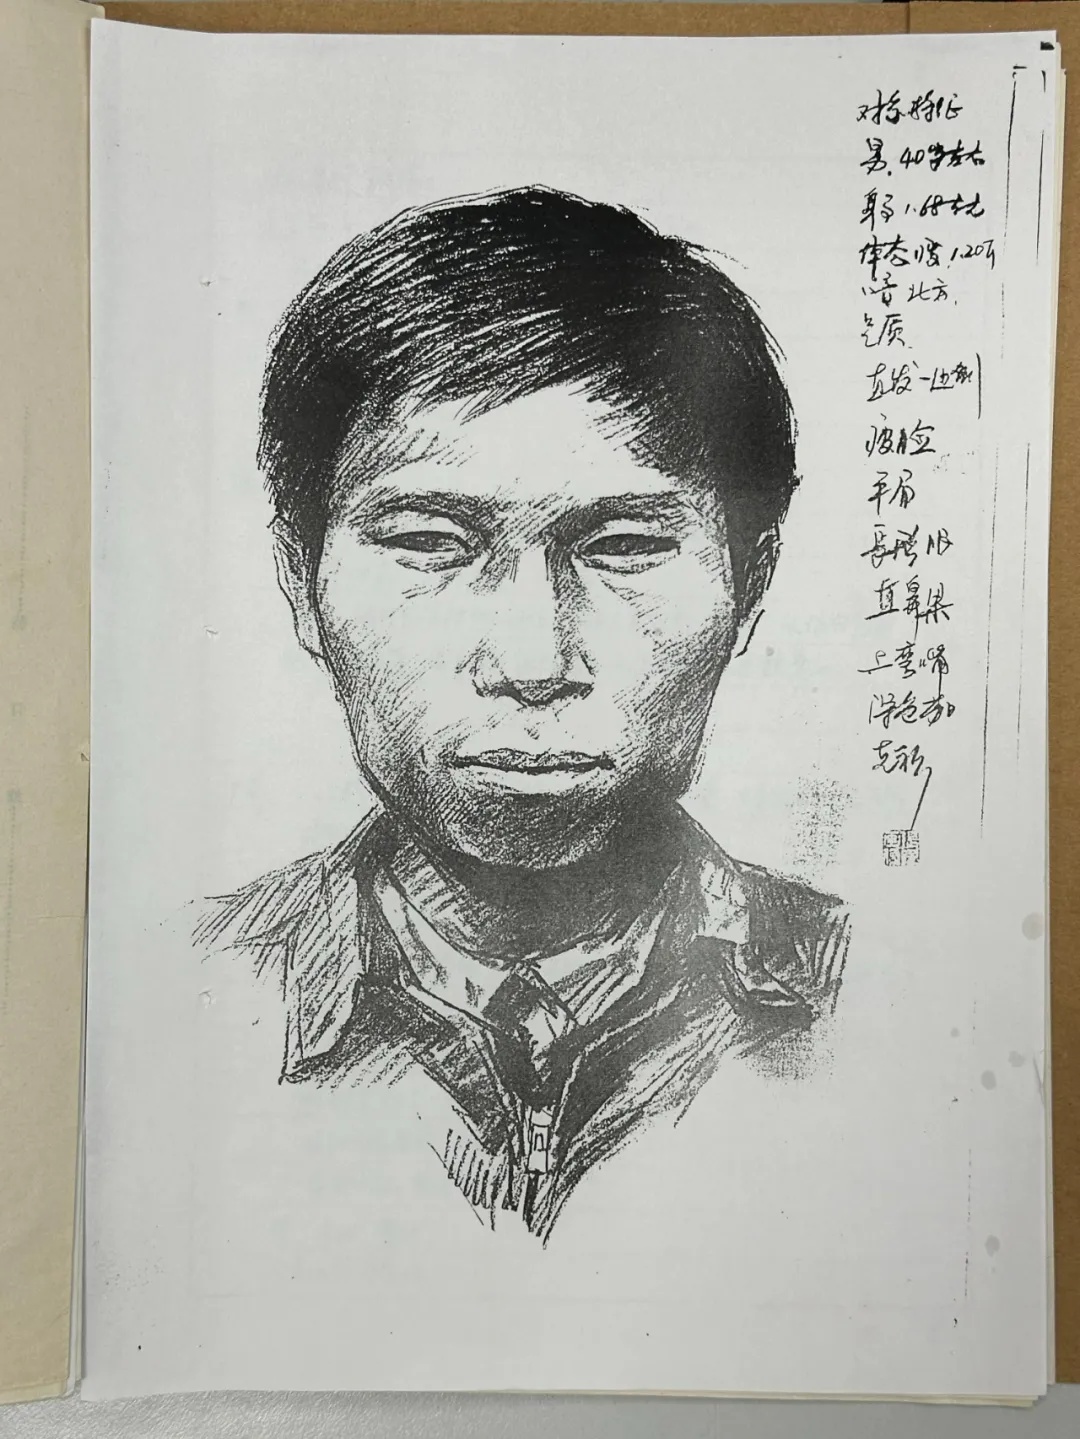 对象特征
男.40岁左右
身高1.68左右
体态瘦,120斤
口音北方.
气质.
直发一边倒
瘦脸
平眉
长形眼
直鼻梁
上弯嘴
深色加
克衫